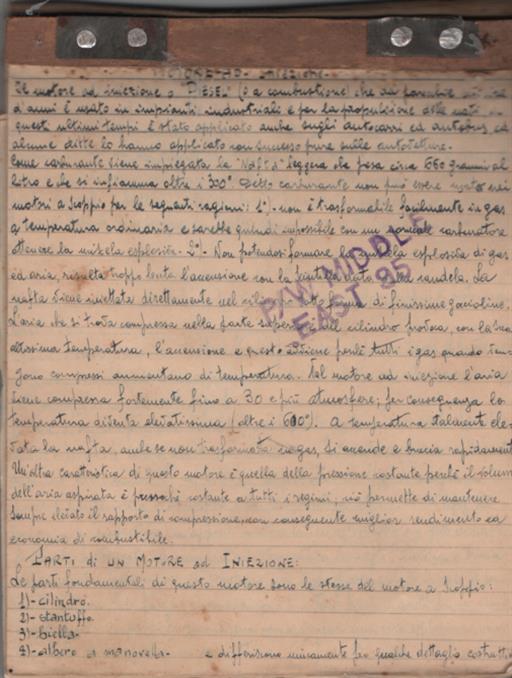 MOTORE AD INIEZIONE
Il motore ad iniezione o DIESEL (o a combustione) che da parecchie
d'anni è usato in impianti industriali e per la propulsione delle navi
questi ultimi tempi è stato applicato anche sugli autocarri ed autobus ed
alcune ditte lo hanno applicato con successo pure sulle autovetture.
Come carburante viene impiegata la "Nafta" leggera che pesa circa 660 grammi al
litro e che si infiamma oltre i 300°. Detto carburante non può essere usato nei
motori a scoppio per le seguenti ragioni: 1°)- non è trasformabile facilmente in gas
a temperatura ordinaria e sarebbe quindi impossibile con un normale carburatore
ottenere la miscela esplosiva. 2°)- Non potendosi formare la miscela esplosiva di gas
ed aria, risulta troppo lenta l'accensione con la scintilla data dalla candela. La
nafta viene iniettata direttamente nel cilindro sotto forma di finissime goccioline.
L'aria che si trova compressa nella parte superiore del cilindro provoca, con la sua
altissima temperatura, l'accensione e questo avviene perchè tutti i gas quando ven-
gono compressi aumentano di temperatura. Nel motore ad iniezione l'aria
viene compressa fortemente fino a 30 e più atmosfere; per conseguenza la
temperatura diventa elevatissima (oltre i 600°). A temperatura talmente ele-
vata la nafta, anche se non trasformata in gas, si accende e brucia rapidamente
Un'altra caratteristica di questo motore è quella della pressione costante perchè il volume
dell'aria aspirata è pressochè costante a tutti i regimi, ciò permette di mantenere
sempre elevato il rapporto di compressione, con conseguente miglior rendimento ed
economia di combustibile.
PARTI di UN MOTORE ad INIEZIONE:
Le parti fondamentali di questo motore sono le stesse del motore a scoppio:
1)- cilindro.
2)- stantuffo.
3)- biella.
4)- albero a manovella. e differiscono unicamente per qualche dettaglio costrutti
P/W MIDDLE
EAST 95